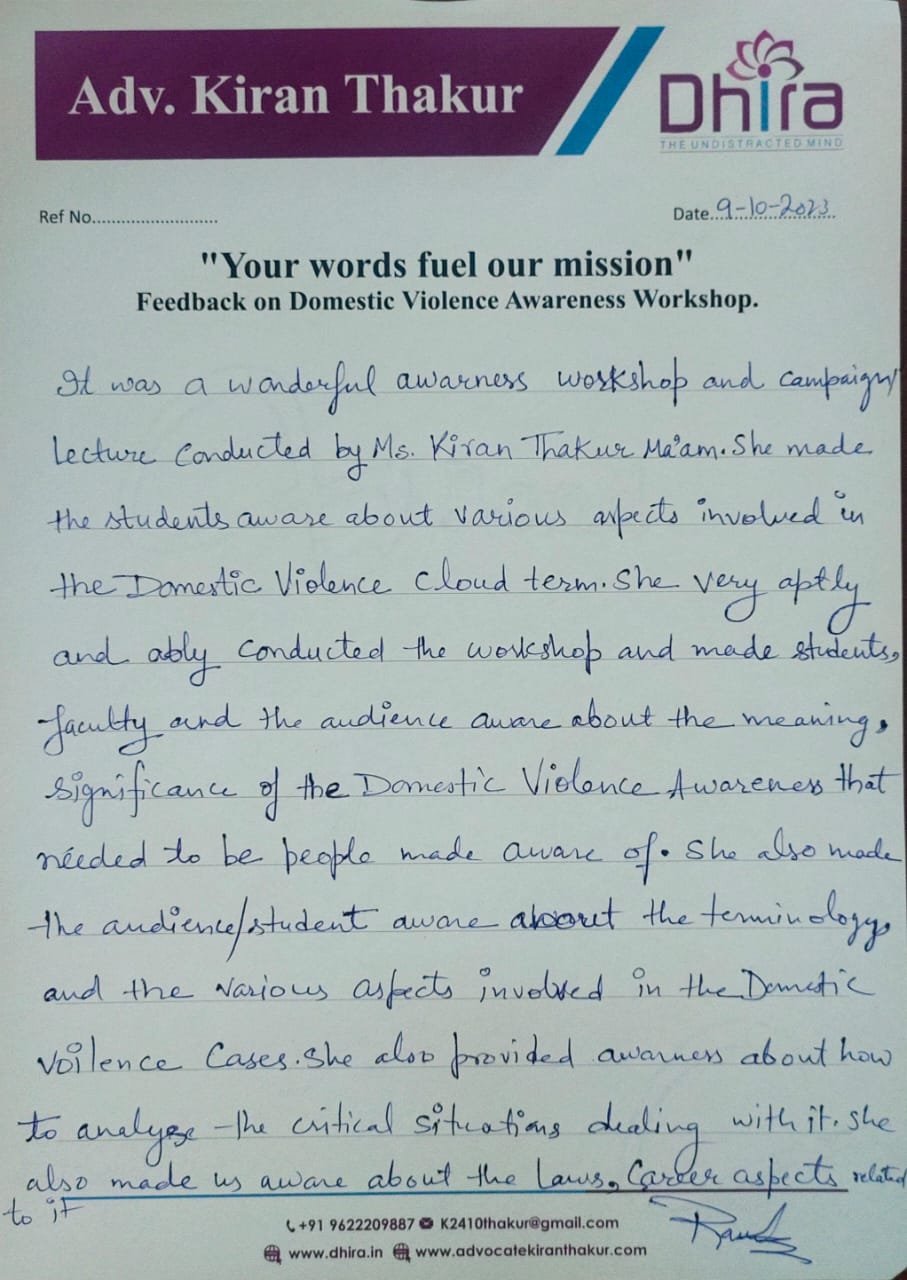 Adv. Kiran Thakur
Dhira
THE UNDISTRACTED MIND
Ref No..........................
Date..9-10-2023..
"Your words fuel our mission"
Feedback on Domestic Violence Awareness Workshop.
It was a wonderful awarness workshop and campaign/
lecture conducted by Ms. Kiran Thakur Ma'am. She made
the students aware about various aspects involved in
the Domestic Violence cloud term. She very aptly
and ably conducted the workshop and made students,
faculty and the audience aware about the meaning,
significance of the Domestic Violence Awareness that
needed to be people made aware of. She also made
the audience/student aware about the terminology,
and the various aspects involved in the Domestic
Voilence Cases. She also provided awarness about how
to analyze the critical situations dealing with it. She
also made us aware about the Laws, Career aspects related
to it
+91 9622209887 K2410thakur@gmail.com
www.dhira.in www.advocatekiranthakur.com